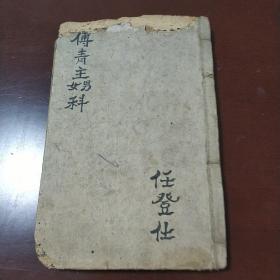 傅青主男女科
任登仕